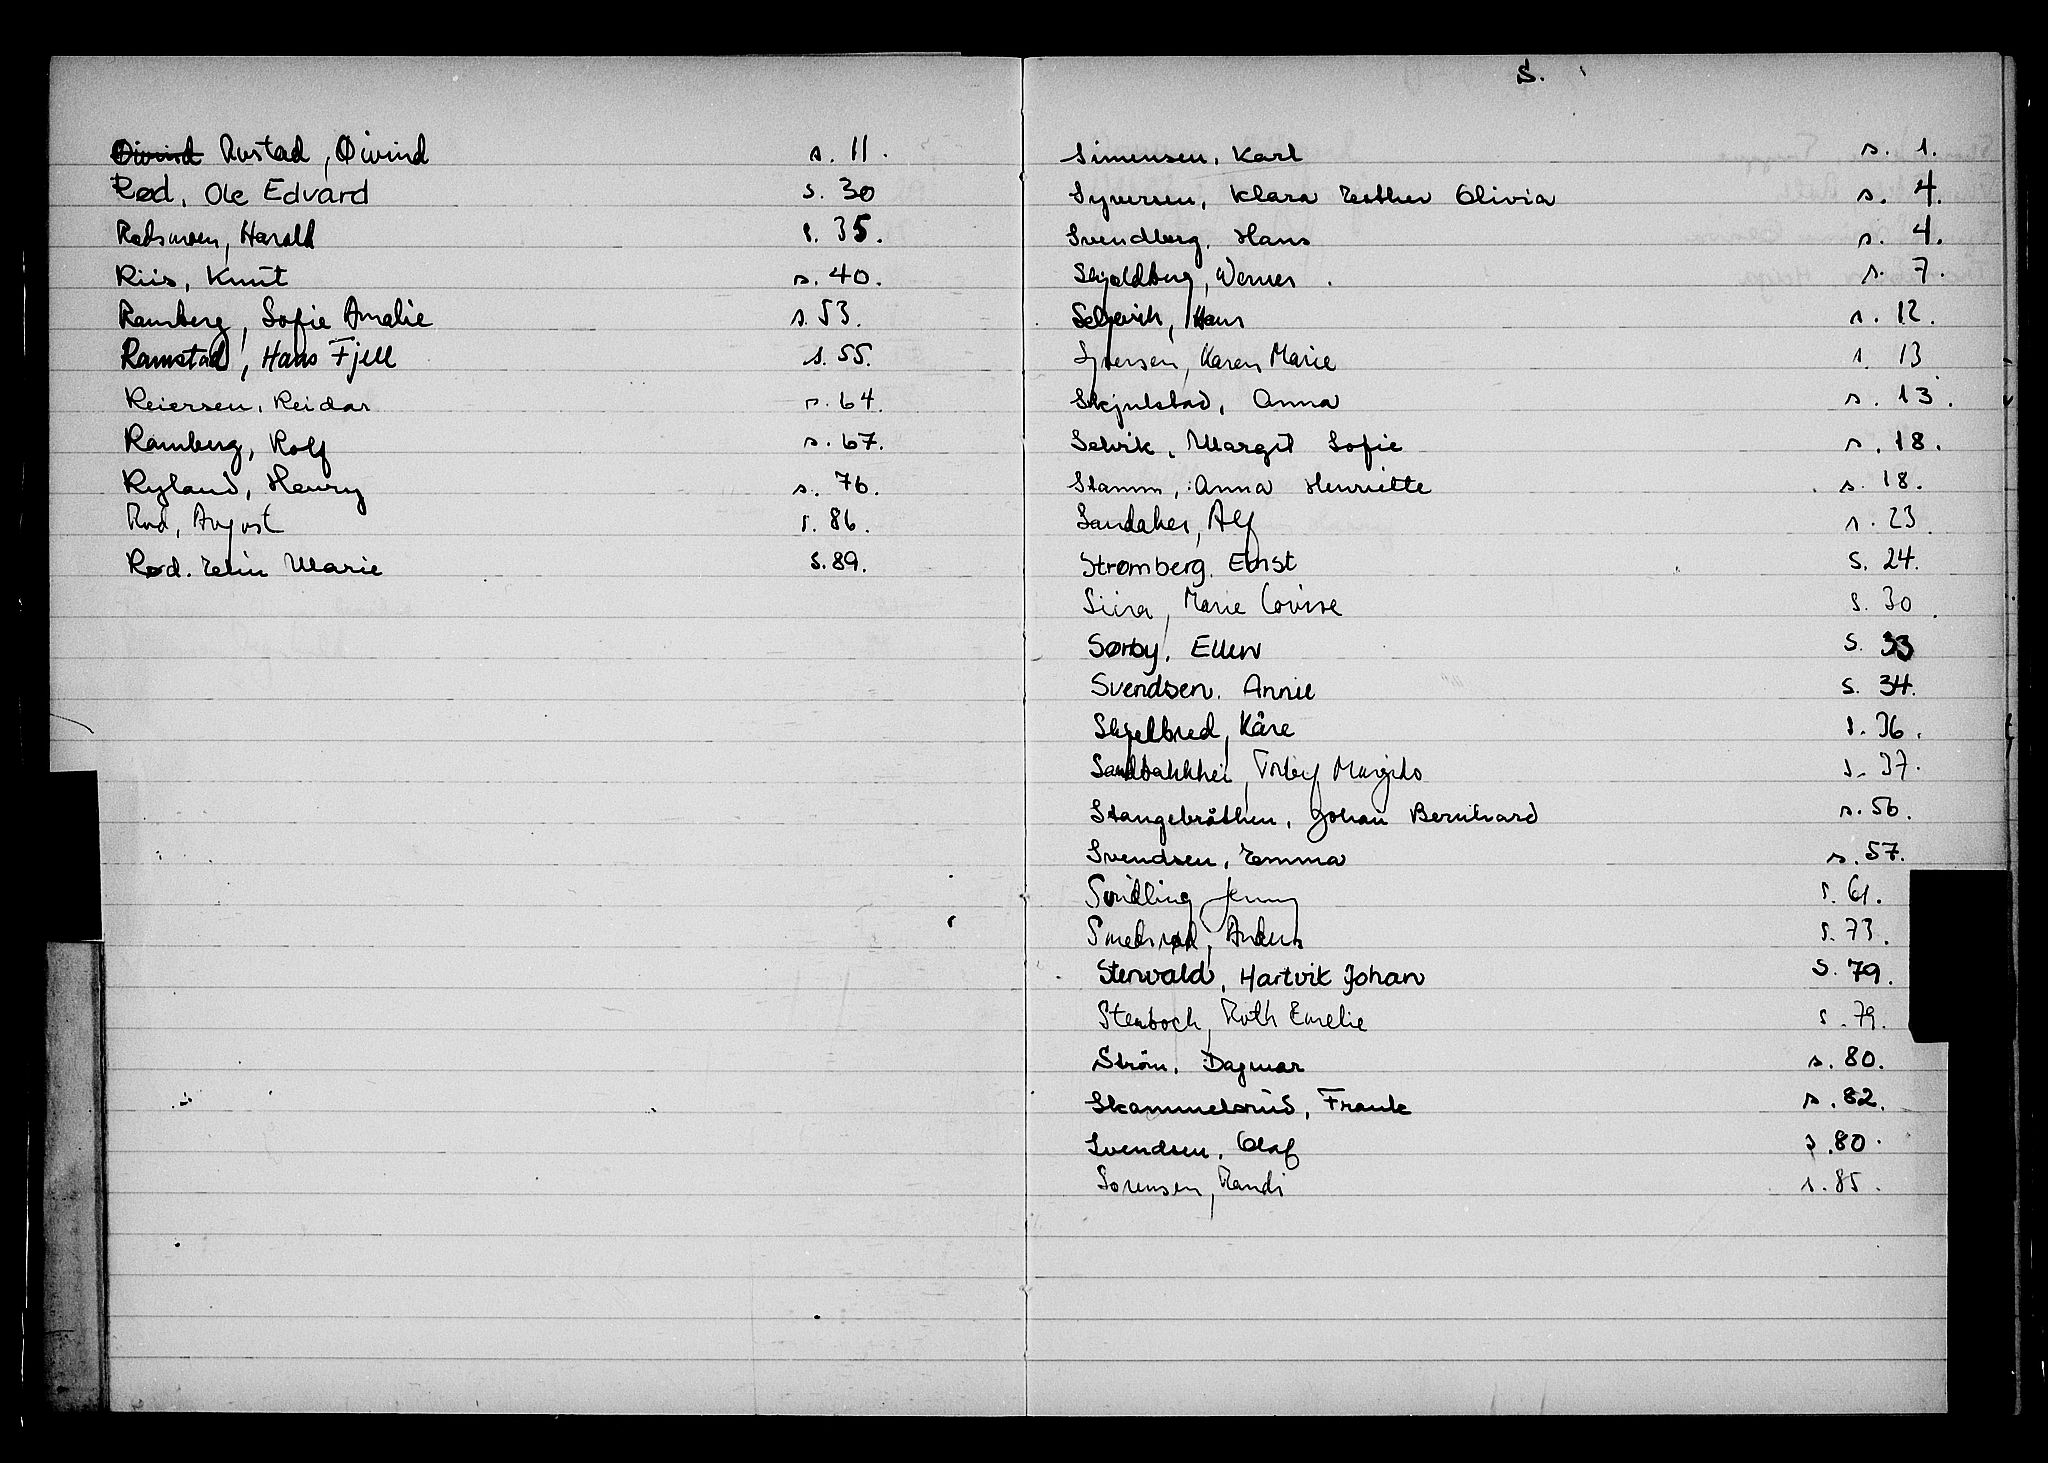 Øivind Rustad, Øivind s. 11.
Rød, Ole Edvard s. 30
Rødsmoen, Harald s. 35.
Riis, Knut s. 40.
Ramberg, Sofie Amalie s. 53.
Ramstad, Hans Fjell s. 55.
Reiersen, Reidar s. 64.
Ramberg, Rolf s. 67.
Ryland, Henry s. 76.
Rud, August s. 86.
Rød. Elin Marie s. 89.
S.
Simensen, Karl s. 1.
Syversen, Klara Esther Olivia s. 4.
Svendberg, Hans s. 4.
Skjoldberg, Werner s. 7.
Seljevik, Hans s. 12.
Syversen, Karen Marie s. 13
Skjulstad, Anna s. 13.
Selvik, Margit Sofie s. 18.
Stamm, Anna Henriette s. 18.
Sandaker, Alf s. 23.
Strømberg. Ernst s. 24.
Siira, Marie Lovise s. 30.
Sørby, Ellen s. 33
Svendsen. Annie s. 34.
Skjelbred, Kåre s. 36.
Sandbakkhei, Margido s. 37.
Stangebråthen, Johan Bernhard s. 56.
Svendsen, Emma s. 57.
Svidling Jenny s. 61.
Smedsrød, Anders s. 73.
Stenvald, Hartvik Johan s. 79.
Stenboch, Ruth Emelie s. 79.
Ström, Dagmar s. 80.
Skammelsrud, Frank s. 82.
Svendsen, Olaf s. 80.
Sørensen, Randi s. 85.